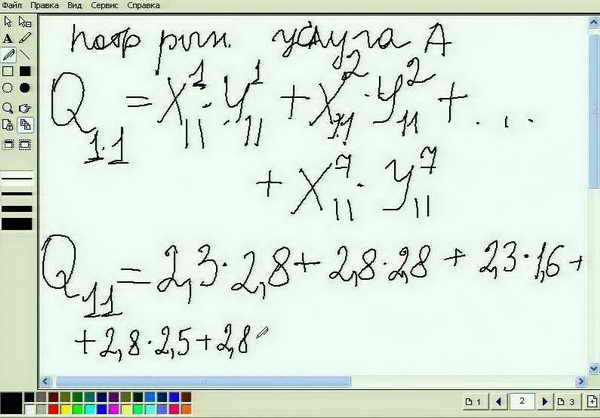 Файл Правка Вид Сервис Справка
потр рын. услуга А
Q₁.₁ = X¹₁₁ · Y¹₁₁ + X²₁₁ · Y²₁₁ + ...
+ X⁷₁₁ · Y⁷₁₁
Q₁₁ = 2,3 · 2,8 + 2,8 · 2,8 + 2,3 · 1,6 +
+ 2,8 · 2,5 + 2,8
1 2 3